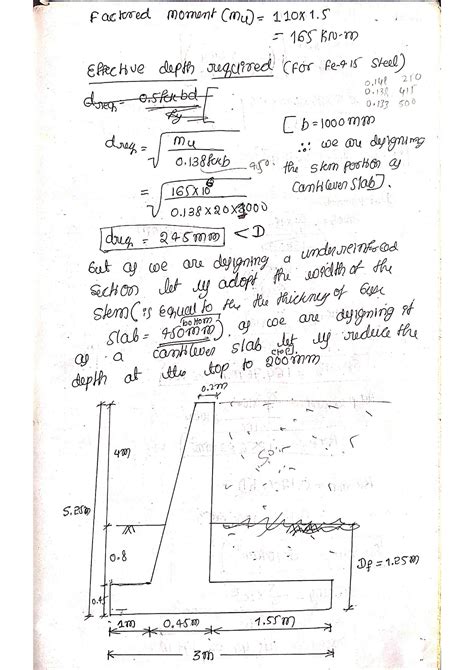 Factored moment (Mu) = 110 X 1.5
= 165 KN-m
Effective depth required (for Fe-415 Steel)
0.148 250
0.138 415
0.133 500
dreq = 0.5fckbd
fy
dreq = √ Mu
0.138fckb
[ b = 1000 mm
∴ we are designing
the stem portion as
cantilever slab].
= √ 165 X 10⁶
0.138 X 20 X 1000
dreq = 245mm < D
But as we are designing a underreinforced
Section let us adopt the width of the
Stem (is equal to the the thickness of base
slab = 450mm). as we are designing it
(bottom)
as a cantilever slab let us reduce the
depth at the top to 200mm
0.2m
4m
Soil
5.25m
0.8
Df = 1.25m
0.45
1m 0.45m 1.55m
3m